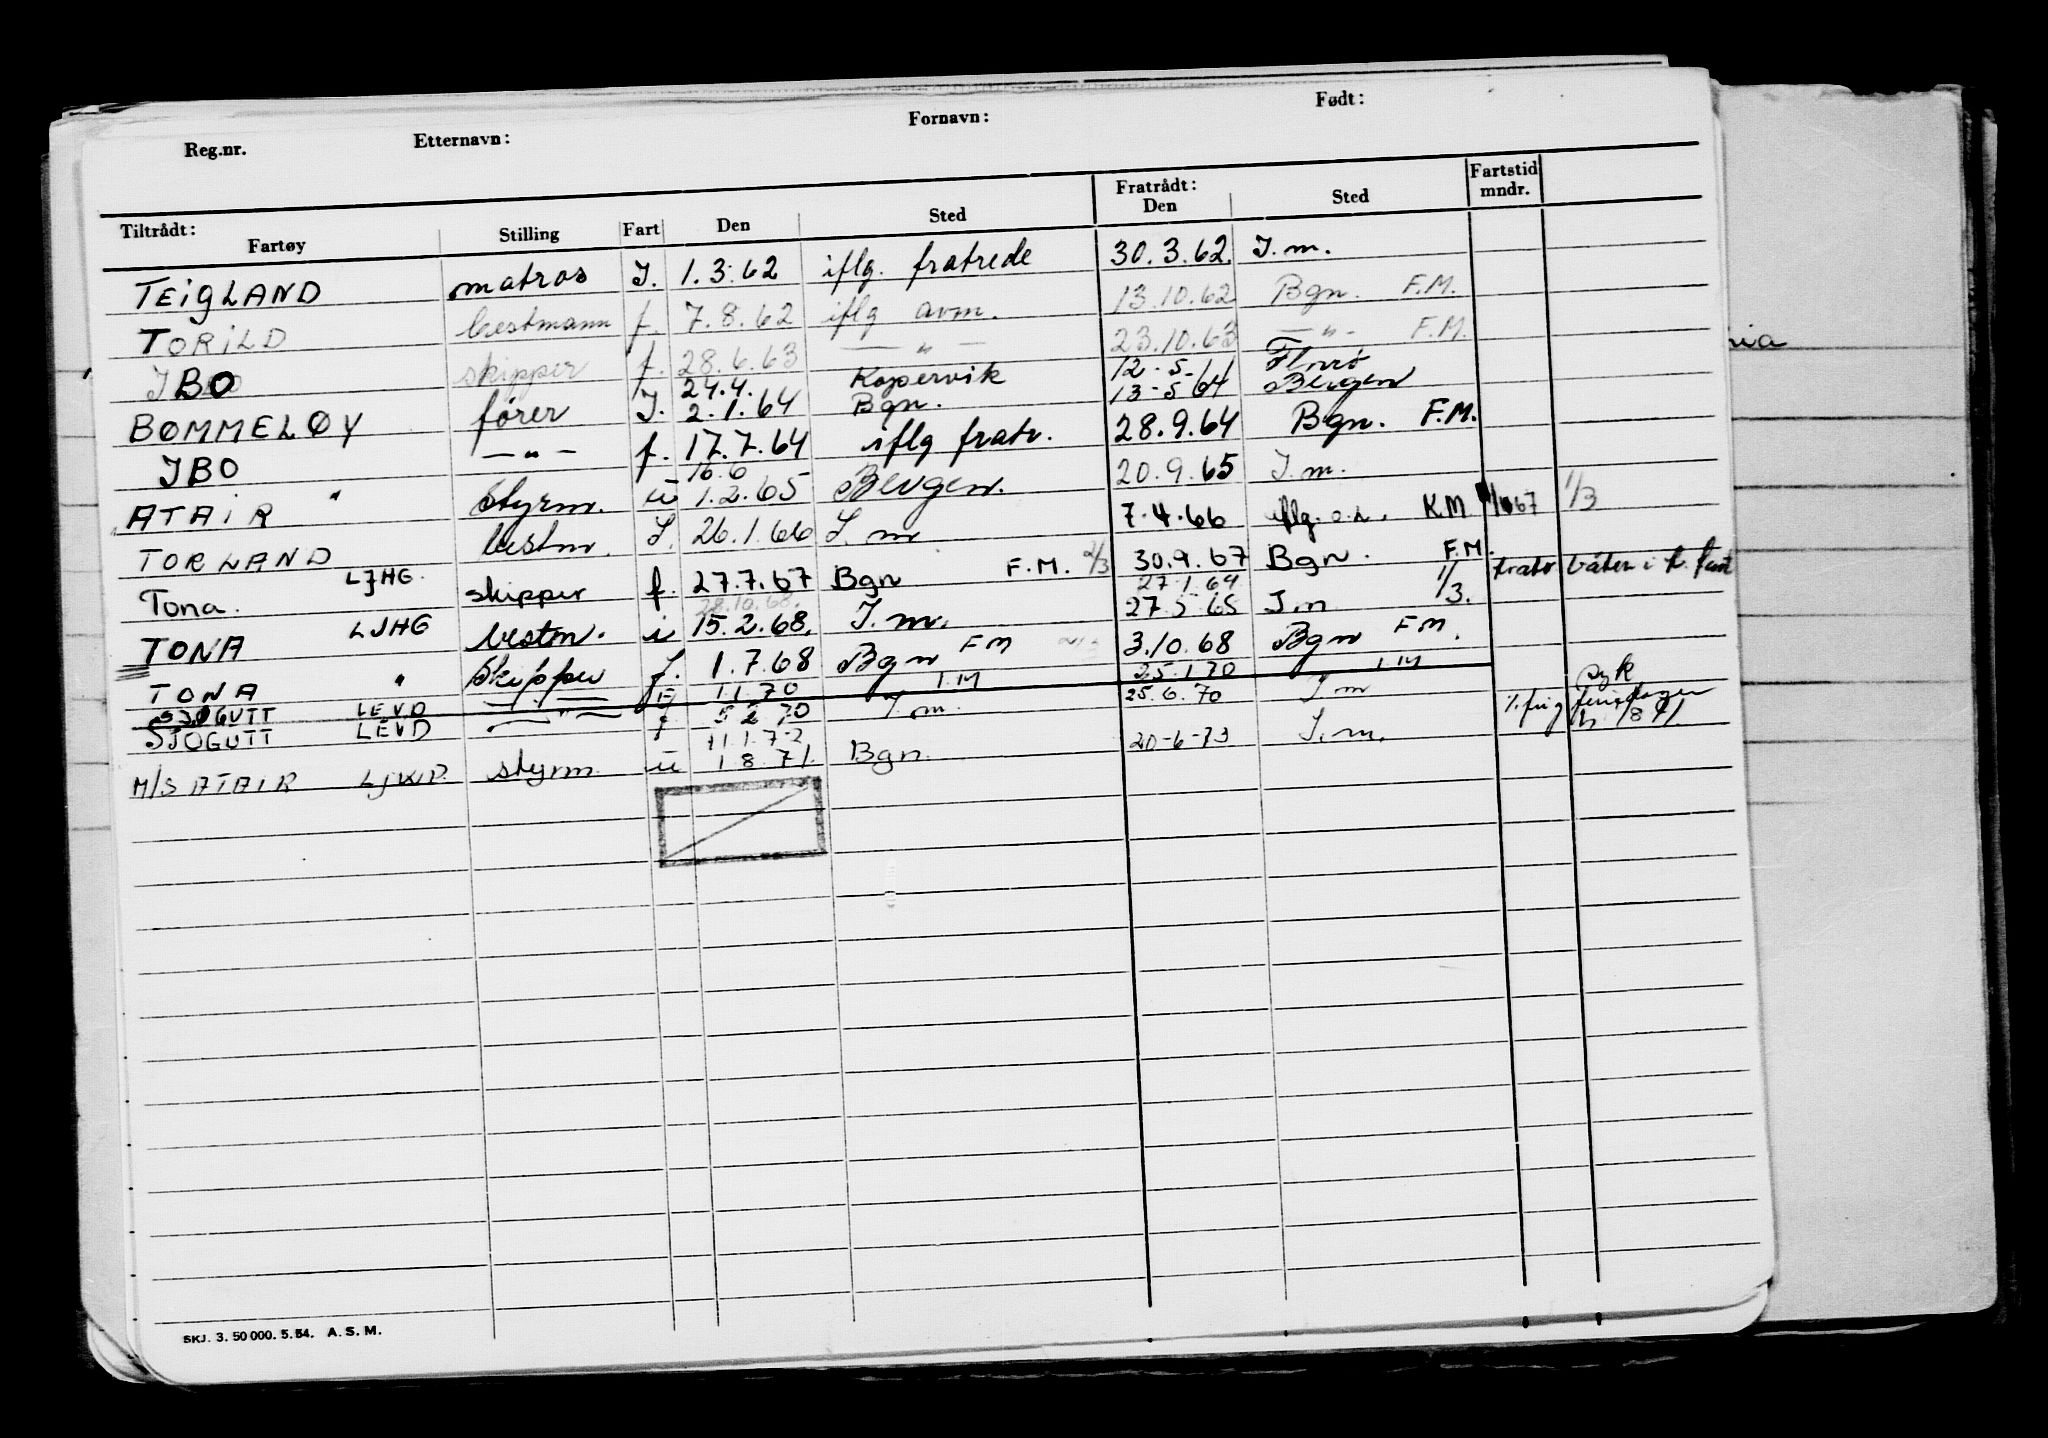 Reg.nr. Etternavn: Fornavn: Født:
Tiltrådt: Fratrådt: Fartstid
Fartøy Stilling Fart Den Sted Den Sted mndr.
TEIGLAND matros I. 1.3.62 iflg. fratrede 30.3.62. I.m.
TORILD bestmann f. 7.8.62 iflg avm. 13.10.62 Bgn. F.M.
IBO skipper f. 28.6.63 — " — 23.10.63 — " — F.M.
24.4. Kopervik 12-5- Florø
BØMMELØY fører I. 2.1.64 Bgn. 13-5-64 Bergen
IBO — " — f. 17.7.64 iflg fratr. 28.9.64 Bgn. F.M.
16.6
ATAIR " styrm. u 1.2.65 Bergen. 20.9.65 I.m.
TORLAND bestm. I. 26.1.66 I.m 7.4.66 iflg. K.M 67 1/3
Tona. LJHG. skipper f. 27.7.67 Bgn F.M. 2/3 30.9.67 Bgn. F.M. fratr båten i
28.10.68. 27.1.64 1/3.
TONA LJHG bestm. i 15.2.68. I.m. 27.5.65 I.m
TONA " Skipper f. 1.7.68 Bgn F M 3.10.68 Bgn F M.
SJØGUTT LEVD — 1.1.70 I M 25.1.70 I M
SJØGUTT LEVD — " — f 5 2 70 I m 25.6.70 I m
11.1.72
M/S ATAIR LJKP. styrm u 1 8 71. Bgn. 20-6-73 I.m.
SKJ. 3. 50 000. 5. 54. A. S. M.